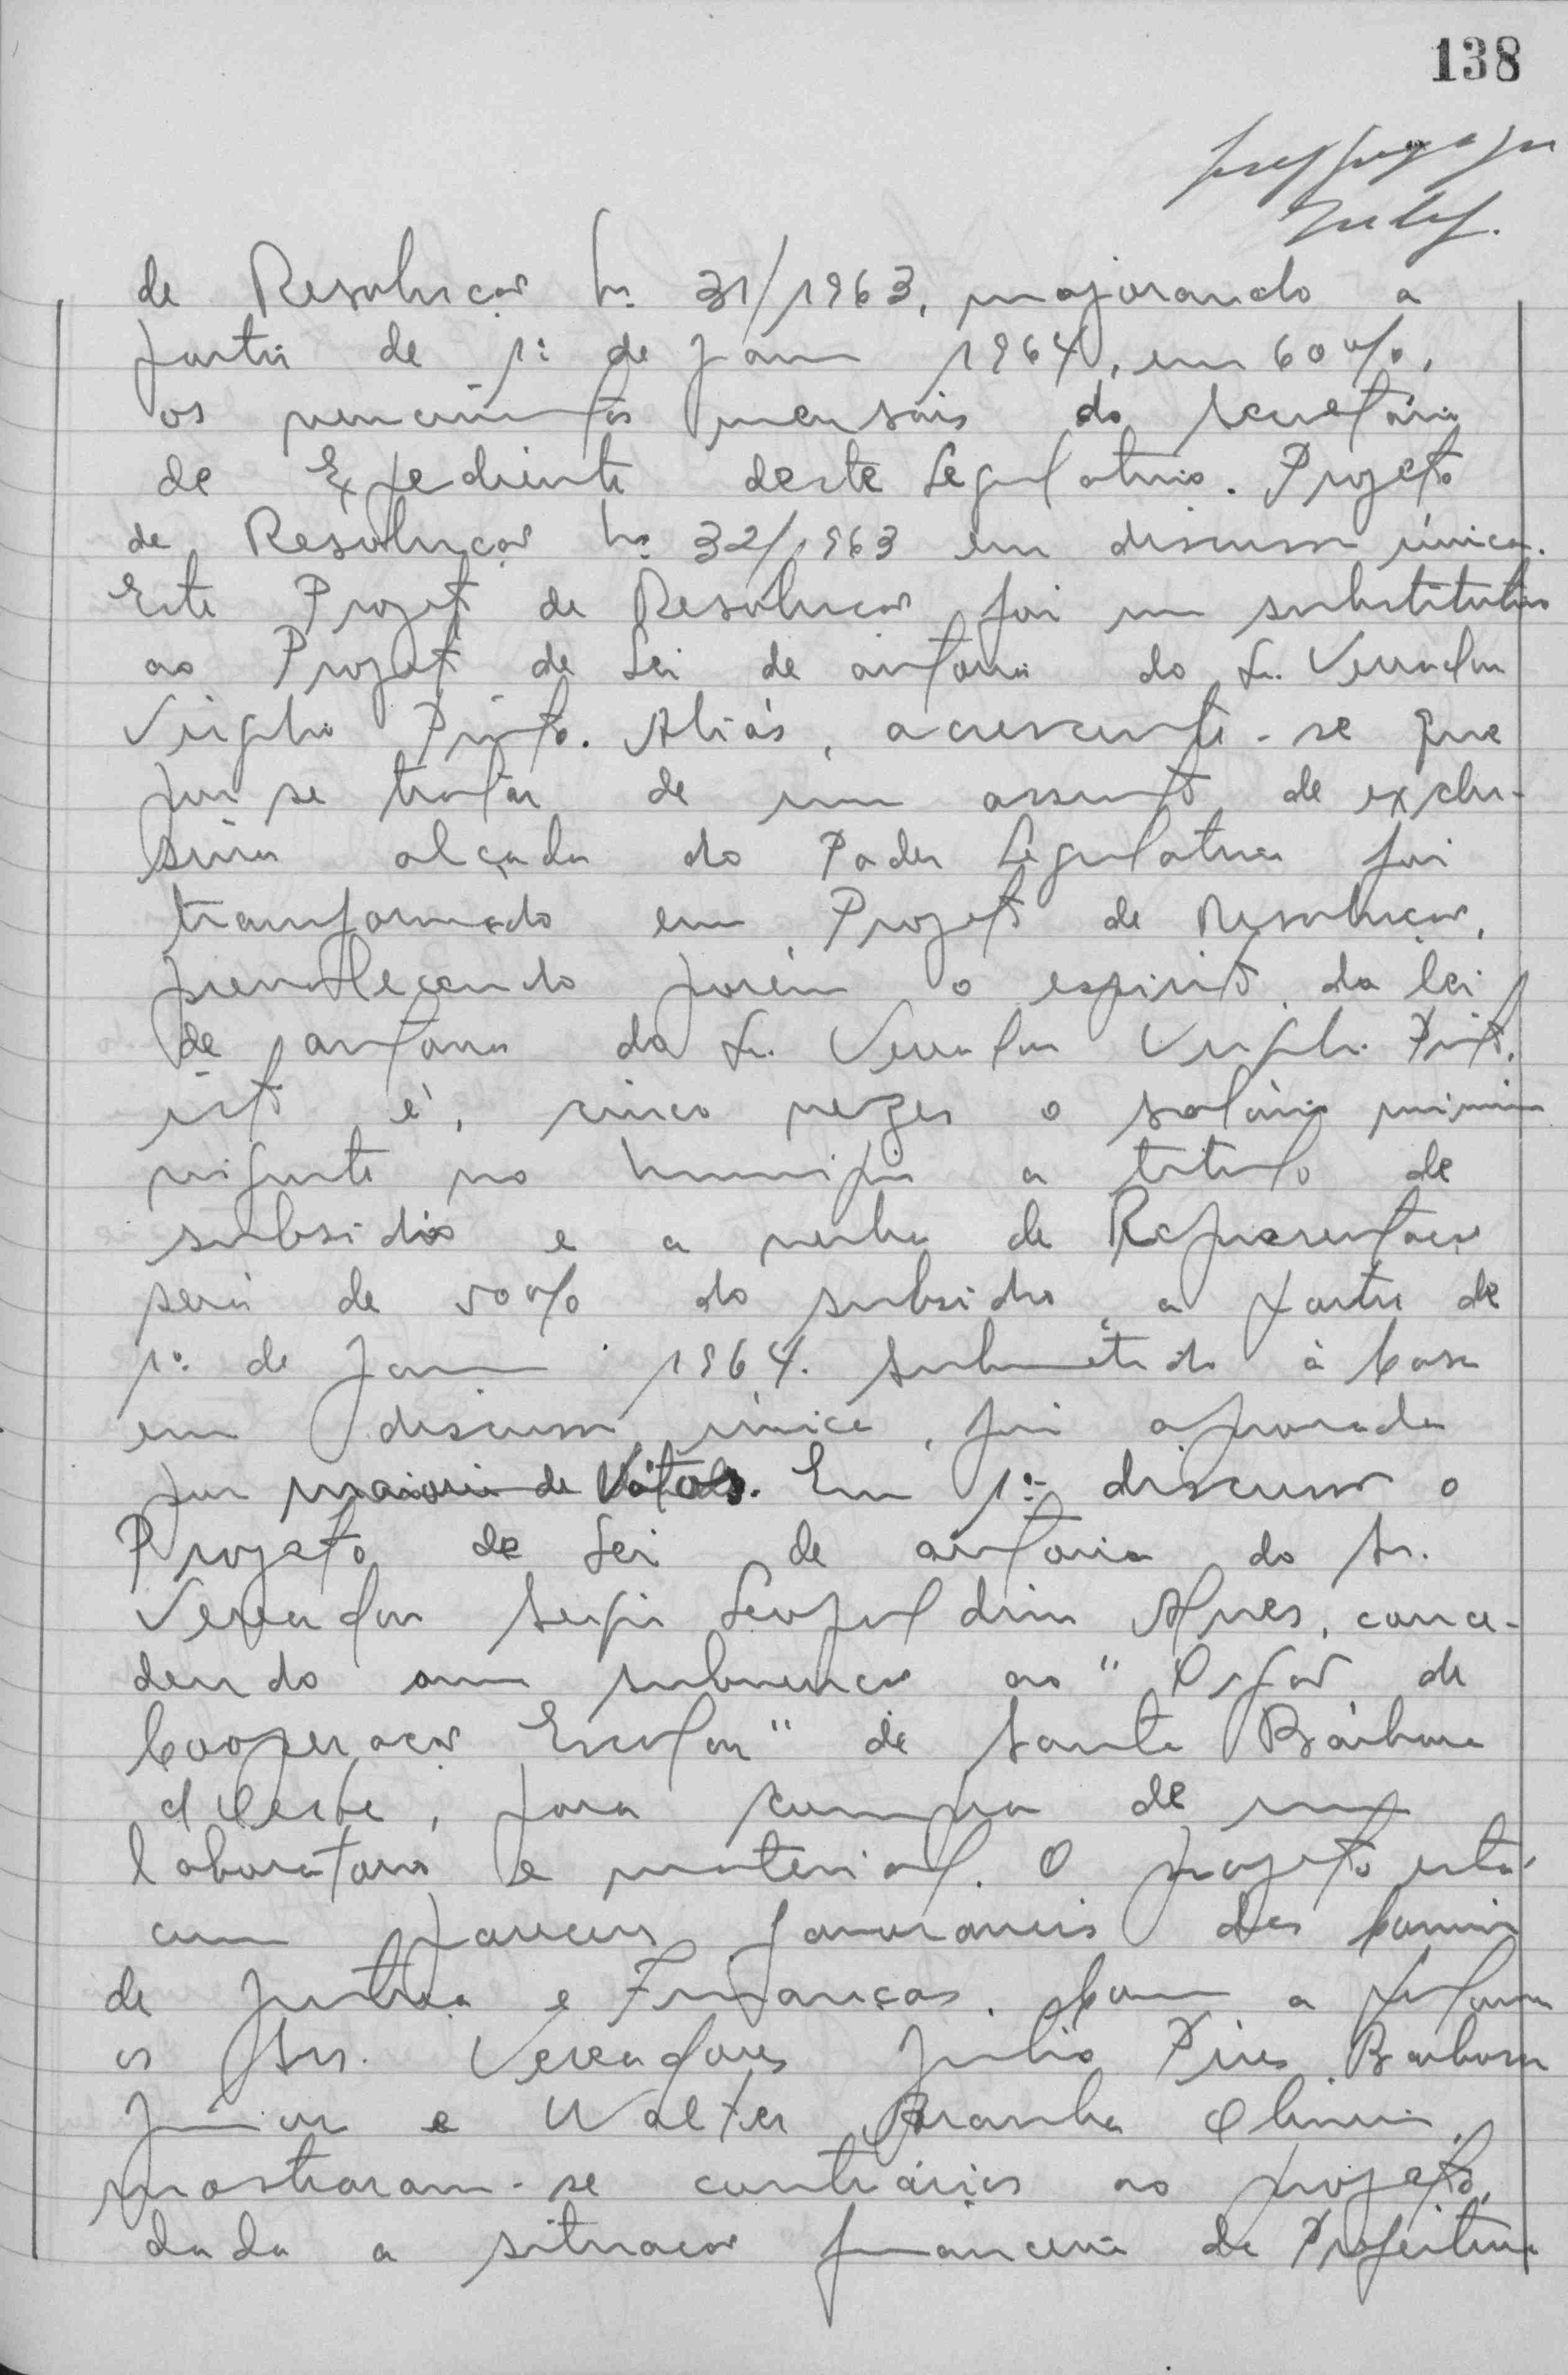 138
de Resolução nº 31/1963, majorando a
partir de 1º de Janeiro 1964, em 60%,
os vencimentos mensais do Secretário
de Expediente deste Legislativo. Projeto
de Resolução nº 32/1963 em discussão única.
Este Projeto de Resolução foi um substitutivo
ao Projeto de Lei de autoria do Sr. Vereador
Virgilio Pinto. Aliás, acrescente-se que
por se tratar de um assunto de exclu-
siva alçada do Poder Legislativo foi
transformado em Projeto de Resolução,
prevalecendo porém o espirito da lei
de autoria do Sr. Vereador Virgilio Pinto,
isto é, cinco vezes o salário minimo
vigente no municipio a titulo de
subsidios e a verba de Representação
será de 50% do subsidio, a partir de
1º de Janeiro 1964. Submetido à Casa
em discussão única, foi aprovada
por maioria de Votos. Em 1ª discussão o
Projeto de Lei de autoria do Sr.
Vereador Sergio Leopoldino Alves, conce-
dendo uma subvenção ao " Orgão de
Cooperação Escolar" de Santa Bárbara
d'Oeste, para compra de um
laboratorio e material. O projeto está
com pareceres favoraveis das Comissões
de Justiça e Finanças. Com a palavra
os Srs. Vereadores Julio Pires Barbosa
Júnior e Walter Aranha Oliveira,
mostraram-se contrários ao projeto,
dada a situação financeira da Prefeitura